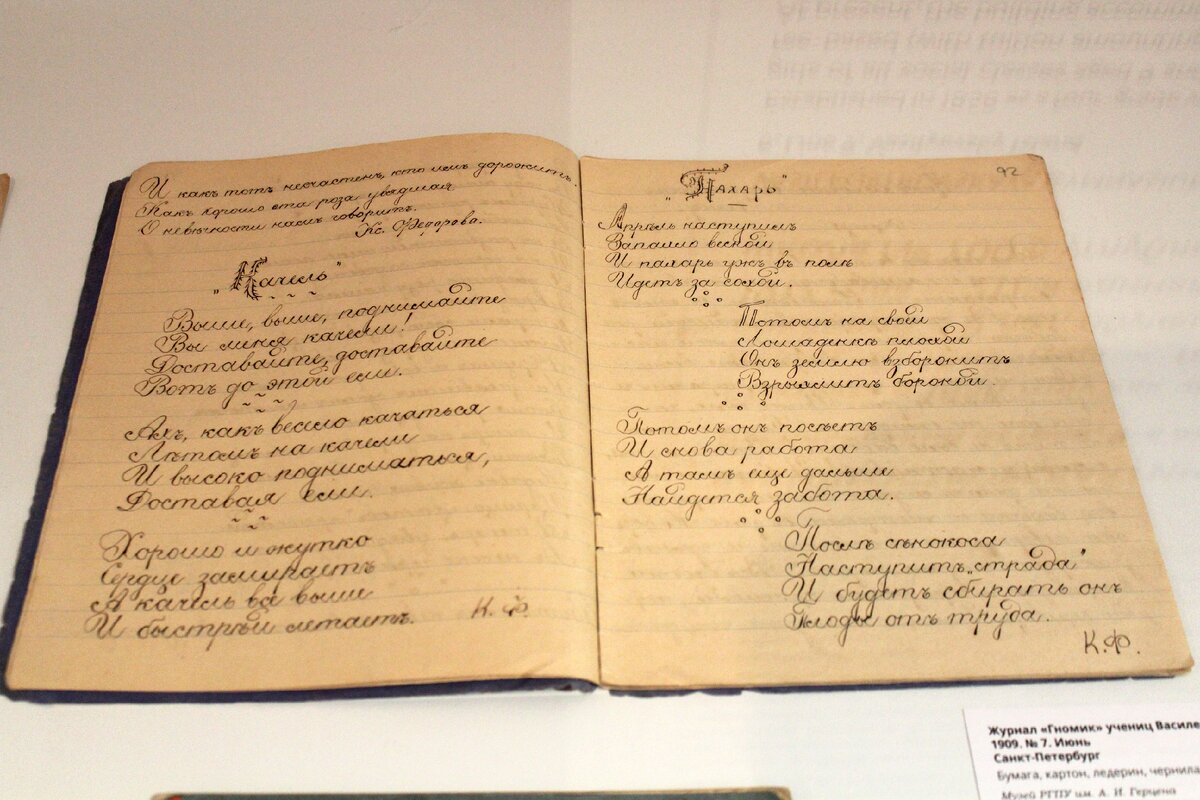 И какъ тотъ несчастенъ, кто имъ дорожитъ.
Какъ хорошо эта роза увядшая
О невѣчности намъ говоритъ.
Кс. Федорова.
„Качель"
Выше, выше, поднимайте
Вы меня качели!
Доставайте, доставайте
Вотъ до этой ели.
Ахъ, какъ весело качаться
Лѣтомъ на качели
И высоко подниматься,
Доставая ели.
Хорошо и жутко
Сердце замираетъ
А качель все выше
И быстрѣй летаетъ.
К. Ф.
92
„Пахарь"
Апрѣль наступилъ
Запахло весной
И пахарь ужъ въ полѣ
Идетъ за сохой.
Потомъ на своей
Лошаденкѣ плохой
Онъ землю взборонитъ
Взрыхлитъ бороной.
Потомъ онъ посѣетъ
И снова работа
А тамъ еще дальше
Найдется забота.
Послѣ сѣнокоса
Наступитъ „страда"
И будетъ сбирать онъ
Плоды отъ труда.
К.Ф.
Журнал «Гномик» учениц Василе
1909. № 7. Июнь
Санкт-Петербург
Бумага, картон, ледерин, чернила
Музей РГПУ им. А. И. Герцена